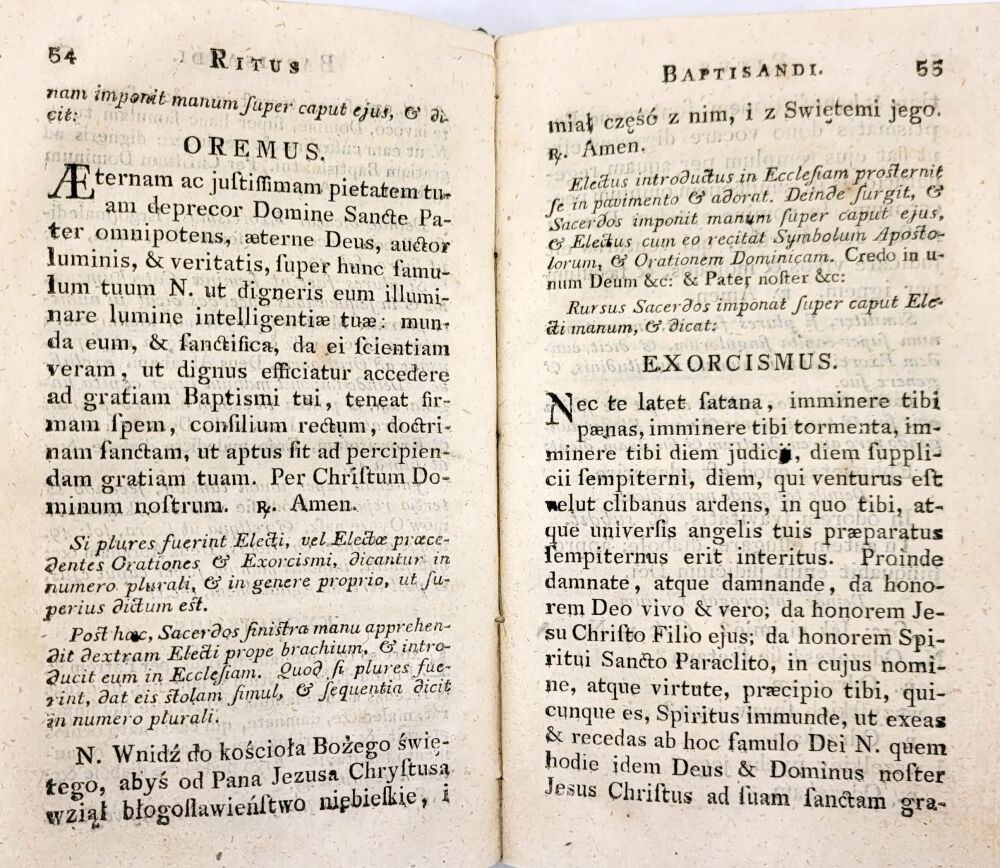 54 RITUS
nam imponit manum ſuper caput ejus, & di-
cit:
OREMUS.
Æternam ac juſtiſſimam pietatem tu-
am deprecor Domine Sancte Pa-
ter omnipotens, æterne Deus, auctor
luminis, & veritatis, ſuper hunc famu-
lum tuum N. ut digneris eum illumi-
nare lumine intelligentiæ tuæ: mun-
da eum, & ſanctifica, da ei ſcientiam
veram, ut dignus efficiatur accedere
ad gratiam Baptismi tui, teneat fir-
mam ſpem, conſilium rectum, doctri-
nam ſanctam, ut aptus ſit ad percipien-
dam gratiam tuam. Per Chriſtum Do-
minum noſtrum. ℟. Amen.
Si plures fuerint Electi, vel Electæ præce-
dentes Orationes & Exorcismi, dicantur in
numero plurali, & in genere proprio, ut ſu-
perius dictum est.
Post hæc, Sacerdos ſinistra manu apprehen-
dit dextram Electi prope brachium, & intro-
ducit eum in Eccleſiam. Quod ſi plures fue-
rint, dat eis ſtolam ſimul, & ſequentia dicit
in numero plurali.
N. Wnidź do kościoła Bożego świę-
tego, abyś od Pana Jezusa Chryſtusa
wziął błogoſlawieńſtwo niębieſkie, i
BAPTISANDI. 55
miał część z nim, i z Swiętemi jego.
℟. Amen.
Electus introductus in Eccleſiam proſternit
ſe in pavimento & adorat. Deinde ſurgit, &
Sacerdos imponit manum ſuper caput ejus,
& Electus cum eo recitat Symbolum Apoſto-
lorum, & Orationem Dominicam. Credo in u-
num Deum &c: & Pater noſter &c:
Rurſus Sacerdos imponat ſuper caput Ele-
cti manum, & dicat:
EXORCISMUS.
Nec te latet ſatana, imminere tibi
pænas, imminere tibi tormenta, im-
minere tibi diem judicii, diem ſuppli-
cii ſempiterni, diem, qui venturus eſt
velut clibanus ardens, in quo tibi, at-
que univerſis angelis tuis præparatus
ſempiternus erit interitus. Proinde
damnate, atque damnande, da hono-
rem Deo vivo & vero; da honorem Je-
su Chriſto Filio ejus; da honorem Spi-
ritui Sancto Paraclito, in cujus nomi-
ne, atque virtute, præcipio tibi, qui-
cunque es, Spiritus immunde, ut exeas
& recedas ab hoc famulo Dei N. quem
hodie idem Deus & Dominus noſter
Jesus Chriſtus ad ſuam ſanctam gra-